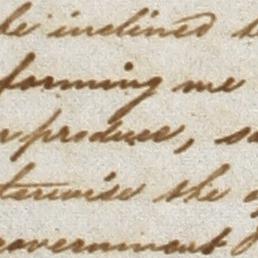 be inclined
forming me
produce, 
terwise the
government